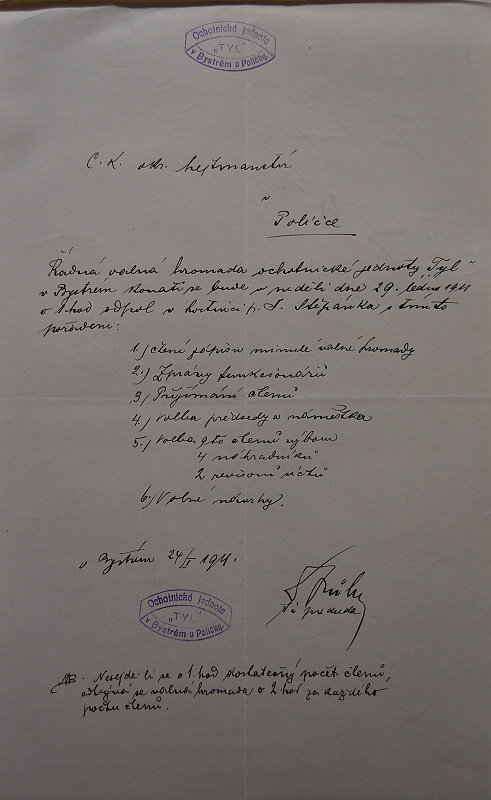 Ochotnická jednota
„TYL"
v Bystrém u Poličky.
C. K. okr. hejtmanství
v
Poličce
Řádná valná hromada ochotnické jednoty „Tyl"
v Bystrém konati se bude v neděli dne 29. ledna 1911
o 1 hod odpol v hostinci p. J. Štěpánka s tímto
pořadem:
1.) čtení zápisu minulé valné hromady
2.) Zprávy funkcionářů
3.) Přijímání členů
4.) Volba předsedy a náměstka
5.) Volba 9ti členů výboru
4 náhradníků
2 revisorů účtů
6.) Volné návrhy.
v Bystrém 24/I 1911.
předseda
Ochotnická jednota
„TYL"
v Bystrém u Poličky.
NB. Nesejde li se o 1. hod dostatečný počet členů,
odbývá se valná hromada o 2 hod za každého
počtu členů.